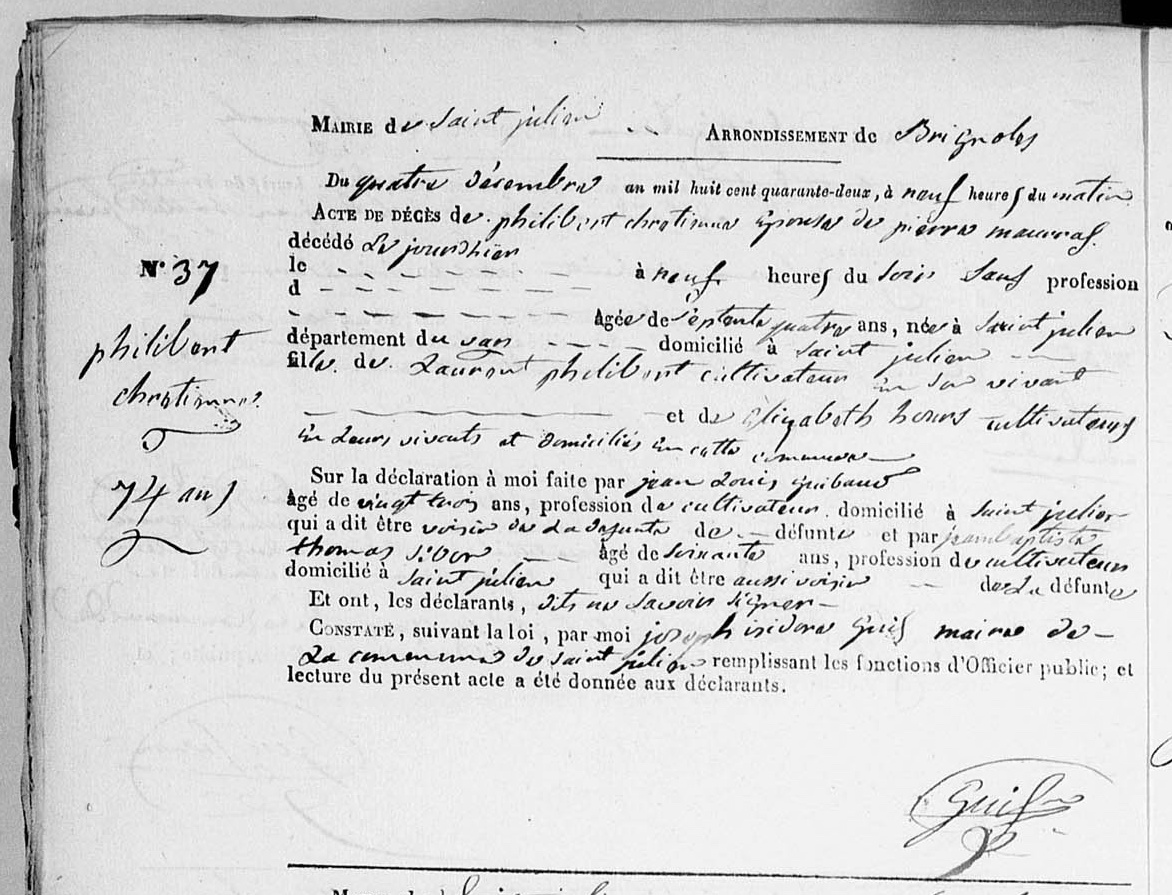 Mairie de Saint julien Arrondissement de Brignoles
Du quatre décembre an mil huit cent quarante-deux, à neuf heures du matin
Acte de décès de philibert chretienne Epouse de pierre maurras
décédé Le jourdhier
le à neuf heures du Soir Sans profession
d
N° 37
Agée de Septente quatre ans, née à Saint julien
département du var domicilié à Saint julien
fille de Laurent philibert cultivateur en Son vivant
philibert
chretienne
et de Elizabeth hours cultivateurs
En Leurs vivants et domiciliés En cette commune
74 ans
Sur la déclaration à moi faite par jean Louis guibaud
âgé de vingt trois ans, profession de cultivateur domicilié à Saint julien
qui a dit être voisin de La defunte de défunte et par jean baptiste
thomas âgé de Soixante ans, profession de cultivateur
domicilié à Saint julien qui a dit être aussi voisin de La défunte
Et ont, les déclarants, dits ne Savoir Signer
Constaté, suivant la loi, par moi joseph isidore Guis maire de
La commune de Saint julien remplissant les fonctions d'Officier public; et
lecture du présent acte a été donnée aux déclarants.
Guis